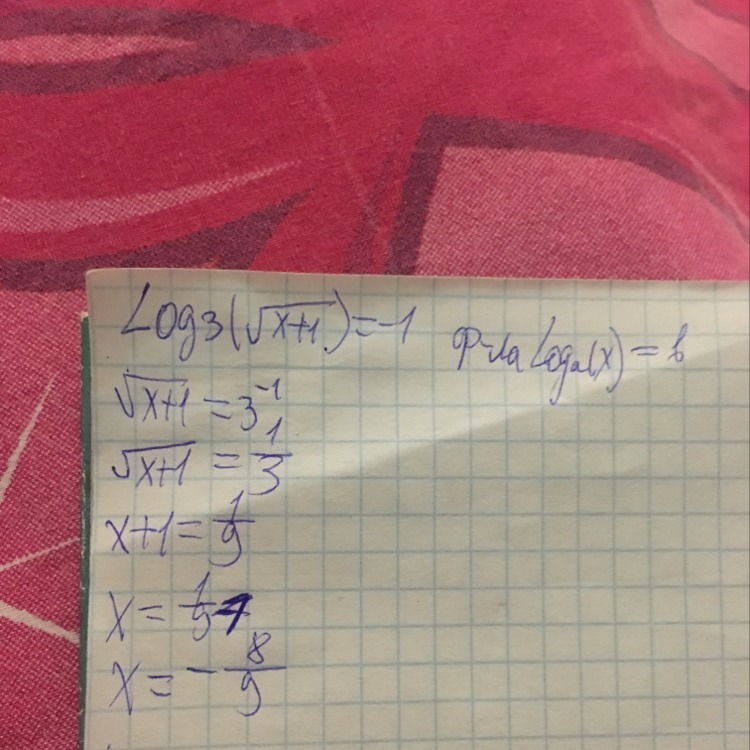 Log₃(√x+1) = -1
Ф-ла Logₐ(x) = b
√x+1 = 3⁻¹
√x+1 = 1/3
x+1 = 1/9
x = 1/9 - 1
x = - 8/9